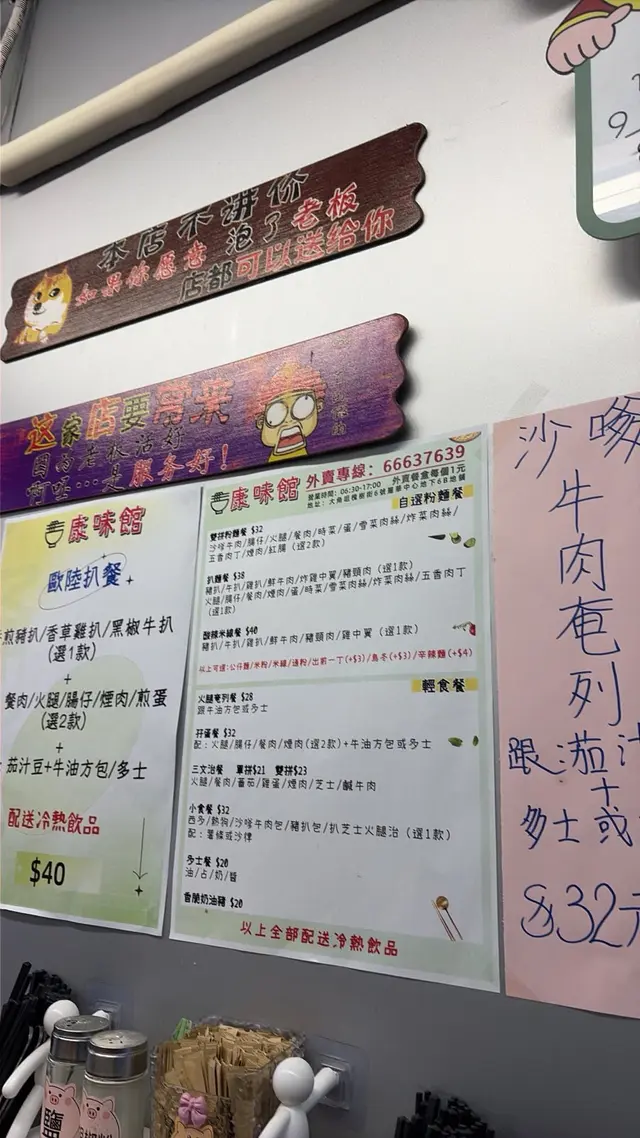 本店不讲价
如果你愿意 泡了老板
店都可以送给你
这家店要常来
因为老板活好
啊呸…是服务好！
康味館
歐陸扒餐
煎豬扒/香草雞扒/黑椒牛扒
(選1款)
+
餐肉/火腿/腸仔/煙肉/煎蛋
(選2款)
+
茄汁豆+牛油方包/多士
配送冷熱飲品
$40
康味館 外賣專線：66637639
營業時間：06:30-17:00 外賣餐盒每個1元
自選粉麵餐
雙拼粉麵餐 $32
沙嗲牛肉/腸仔/火腿/餐肉/時菜/蛋/雪菜肉絲/炸菜肉絲/
五香肉丁/煙肉/紅腸 (選2款)
扒麵餐 $38
豬扒/牛扒/雞扒/鮮牛肉/炸雞中翼/豬頸肉 (選1款)
火腿/腸仔/餐肉/煙肉/蛋/時菜/雪菜肉絲/炸菜肉絲/五香肉丁
(選1款)
酸辣米線餐 $40
豬扒/牛扒/雞扒/鮮牛肉/豬頸肉/雞中翼 (選1款)
以上可選:公仔麵/米粉/米線/通粉/出前一丁(+$3)/烏冬(+$3)/辛辣麵(+$4)
輕食餐
火腿奄列餐 $28
跟牛油方包或多士
孖蛋餐 $32
配：火腿/腸仔/餐肉/煙肉(選2款)+牛油方包或多士
三文治餐 單拼$21 雙拼$23
火腿/餐肉/蕃茄/雞蛋/煙肉/芝士/鹹牛肉
小食餐 $32
西多/熱狗/沙嗲牛肉包/豬扒包/扒芝士火腿治 (選1款)
配：薯條或沙律
多士餐 $20
油/占/奶/醬
香脆奶油豬 $20
以上全部配送冷熱飲品
沙嗲
牛
肉
奄
列
跟茄汁
+
多士或
$32元
鹽